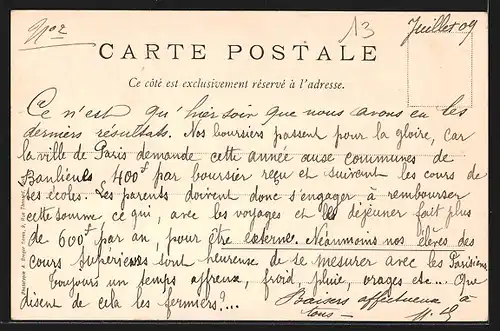 No 2
13
Juillet 09
CARTE POSTALE
Ce côté est exclusivement réservé à l'adresse.
Ce n'est qu'hier soir que nous avons eu les
derniers résultats. Nos boursiers passent pour la gloire, car
la ville de Paris demande cette année aux communes de
Banlieue 400f par boursier reçu et suivant les cours de
ses écoles. Les parents doivent donc s'engager à rembourser
cette somme ce qui, avec les voyages et le déjeuner fait plus
de 600f par an, pour être externe. Néanmoins nos élèves des
cours supérieurs sont heureuse de se mesurer avec les Parisiens
Toujours un temps affreux, froid, pluie, orages etc... Que
disent de cela les fermiers?...
Baisers affectueux à
tous —